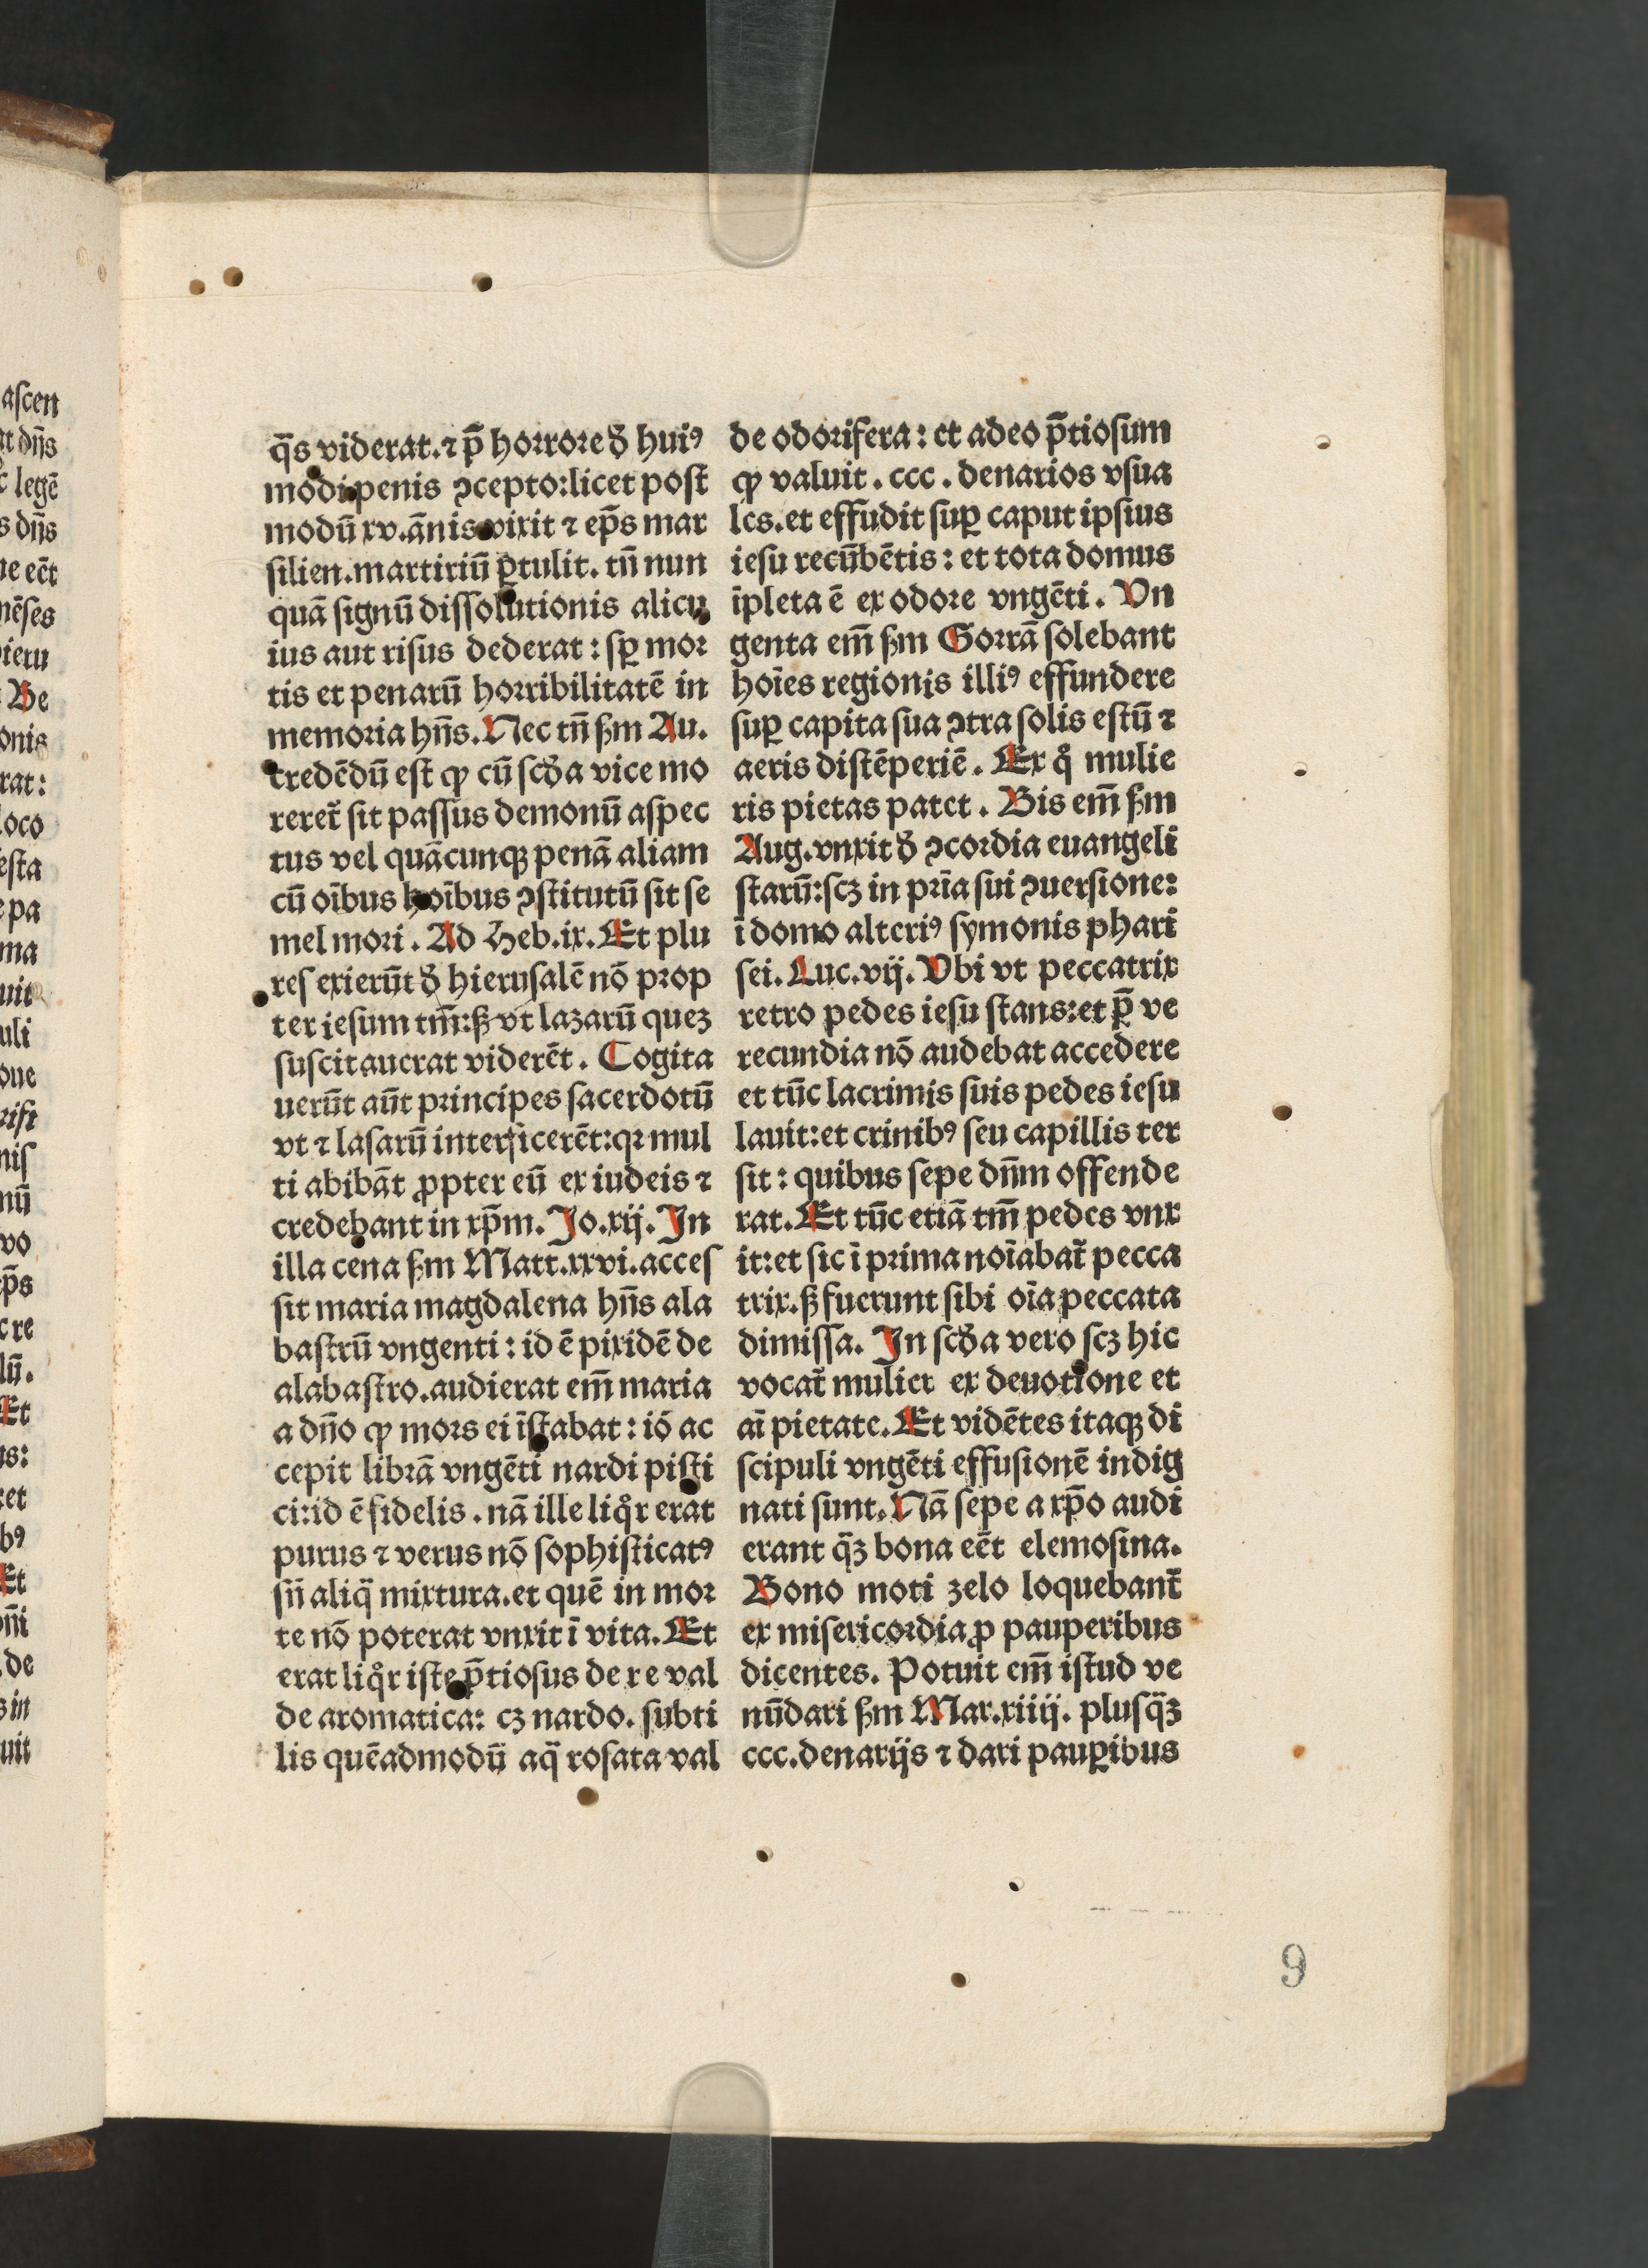 q̄s viderat.⁊ p̄ horrore đ hui⁹
modi penis ↄcepto:licet post
modū xv.ānis vixit ⁊ ep̄s mar
silien.martiriū ꝑtulit. tn̄ nun
quā signū dissolutionis alicu
ius aut risus dederat : sꝑ mor
tis et penarū horribilitatē in
memoria hn̄s.Nec tn̄ ẜm Au.
credēdū est ꝙ cū scđa vice mo
reret̄ sit passus demonū aspec
tus vel quācunqꝫ penā aliam
cū oībus hoībus ↄstitutū sit se
mel mori . Ad Heb.ix.Et plu
res exierūt đ hierusalē nō prop
ter iesum tm̄:ẜ vt lazarū quez
suscitauerat viderēt . Cogita
uerūt aūt principes sacerdotū
vt ⁊ lasarū interficerēt:qꝛ mul
ti abibāt ꝓpter eū ex iudeis ⁊
credebant in xp̄m. Jo.xij. Jn
illa cena ẜm Matt.xxvi.acces
sit maria magdalena hn̄s ala
bastrū vngenti : id ē pixidē de
alabastro.audierat em̄ maria
a dn̄o ꝙ mors ei īstabat : iō ac
cepit librā vngēti nardi pisti
ci:id ē fidelis . nā ille liqͦr erat
purus ⁊ verus nō sophisticat⁹
sn̄ aliq̄ mixtura.et quē in mor
te nō poterat vnxit ī vita. Et
erat liqͦr iste p̄tiosus de re val
de aromatica: cꝫ nardo. subti
lis quēadmodū aq̄ rosata val
de odorifera : et adeo p̄tiosum
ꝙ valuit . ccc . denarios vsua
les.et effudit suꝑ caput ipsius
iesu recūbētis : et tota domus
īpleta ē ex odore vngēti . Vn
genta em̄ ẜm Gorrā solebant
hoīes regionis illi⁹ effundere
suꝑ capita sua ↄtra solis estū ⁊
aeris distēperiē . Ex qͦ mulie
ris pietas patet . Bis em̄ ẜm
Aug.vnxit đ ↄcordia euangeli
starū:scꝫ in prīa sui ↄuersione:
ī domo alteri⁹ symonis phari
sei. Luc.vij. Vbi vt peccatrix
retro pedes iesu stans:et p̄ ve
recundia nō audebat accedere
et tūc lacrimis suis pedes iesu
lauit:et crinib⁹ seu capillis ter
sit : quibus sepe dn̄m offende
rat. Et tūc etiā tm̄ pedes vnx
it:et sic ī prima noīabat̄ pecca
trix.ẜ fuerunt sibi oīa peccata
dimissa. Jn scđa vero scꝫ hic
vocat̄ mulier ex deuotione et
aī pietate. Et vidētes itaqꝫ di
scipuli vngēti effusionē indig
nati sunt. Nā sepe a xp̄o audi
erant q̄ꝫ bona eēt elemosina.
Bono moti zelo loquebant̄
ex misericordia ꝓ pauperibus
dicentes. Potuit em̄ istud ve
nūdari ẜm Mar.xiiij. plusq̄ꝫ
ccc.denarijs ⁊ dari pauꝑibus
9